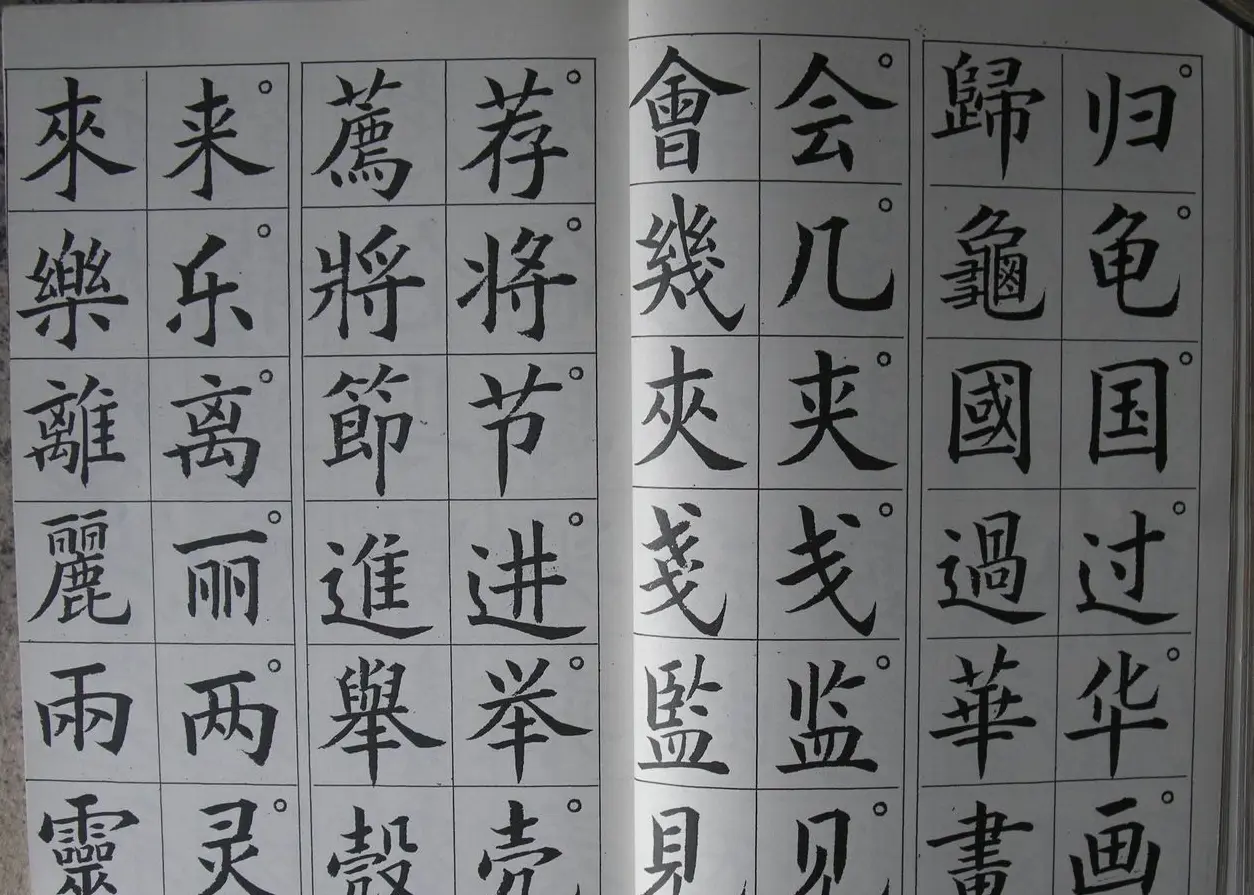 來来 薦荐 會会 歸归
樂乐 將将 幾几 龜龟
離离 節节 夾夹 國国
麗丽 進进 戔戋 過过
兩两 舉举 監监 華华
靈灵 殼壳 見见 畫画